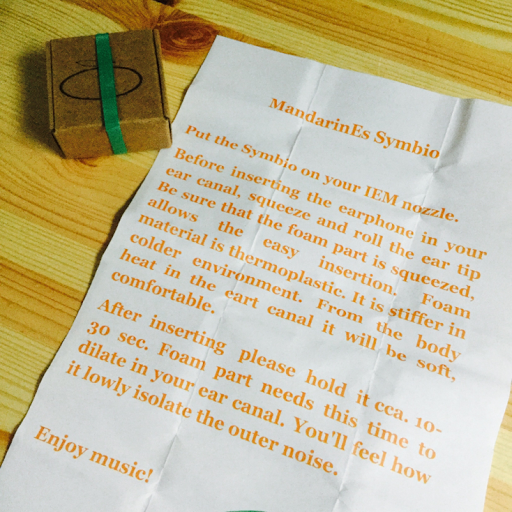 MandarinEs Symbio
Put the Symbio on your IEM nozzle.
Before inserting the earphone in your
ear canal, squeeze and roll the ear tip
Be sure that the foam part is squeezed,
allows the easy insertion. Foam
material is thermoplastic. It is stiffer in
colder environment. From the body
heat in the eart canal it will be soft,
comfortable.
After inserting please hold it cca. 10-
30 sec. Foam part needs this time to
dilate in your ear canal. You'll feel how
it lowly isolate the outer noise.
Enjoy music!